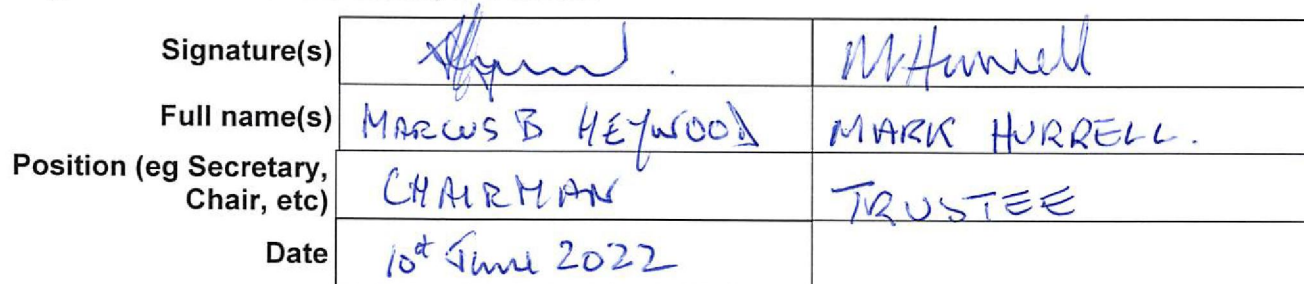 Signature(s) M Hurrell
Full name(s) MARCUS B HEYWOOD MARK HURRELL.
Position (eg Secretary,
Chair, etc) CHAIRMAN TRUSTEE
Date 10th June 2022